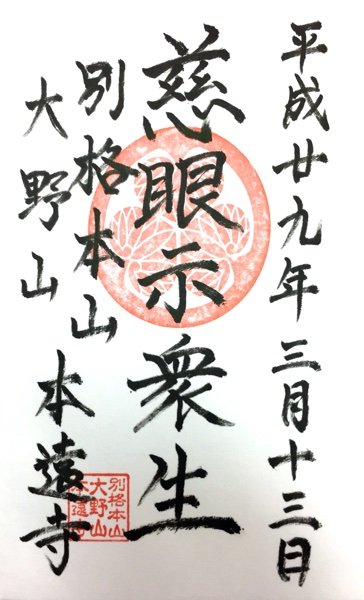 平成廿九年三月十三日
慈眼示衆生
別格本山
大野山本遠寺
別格本山
大野山
本遠寺